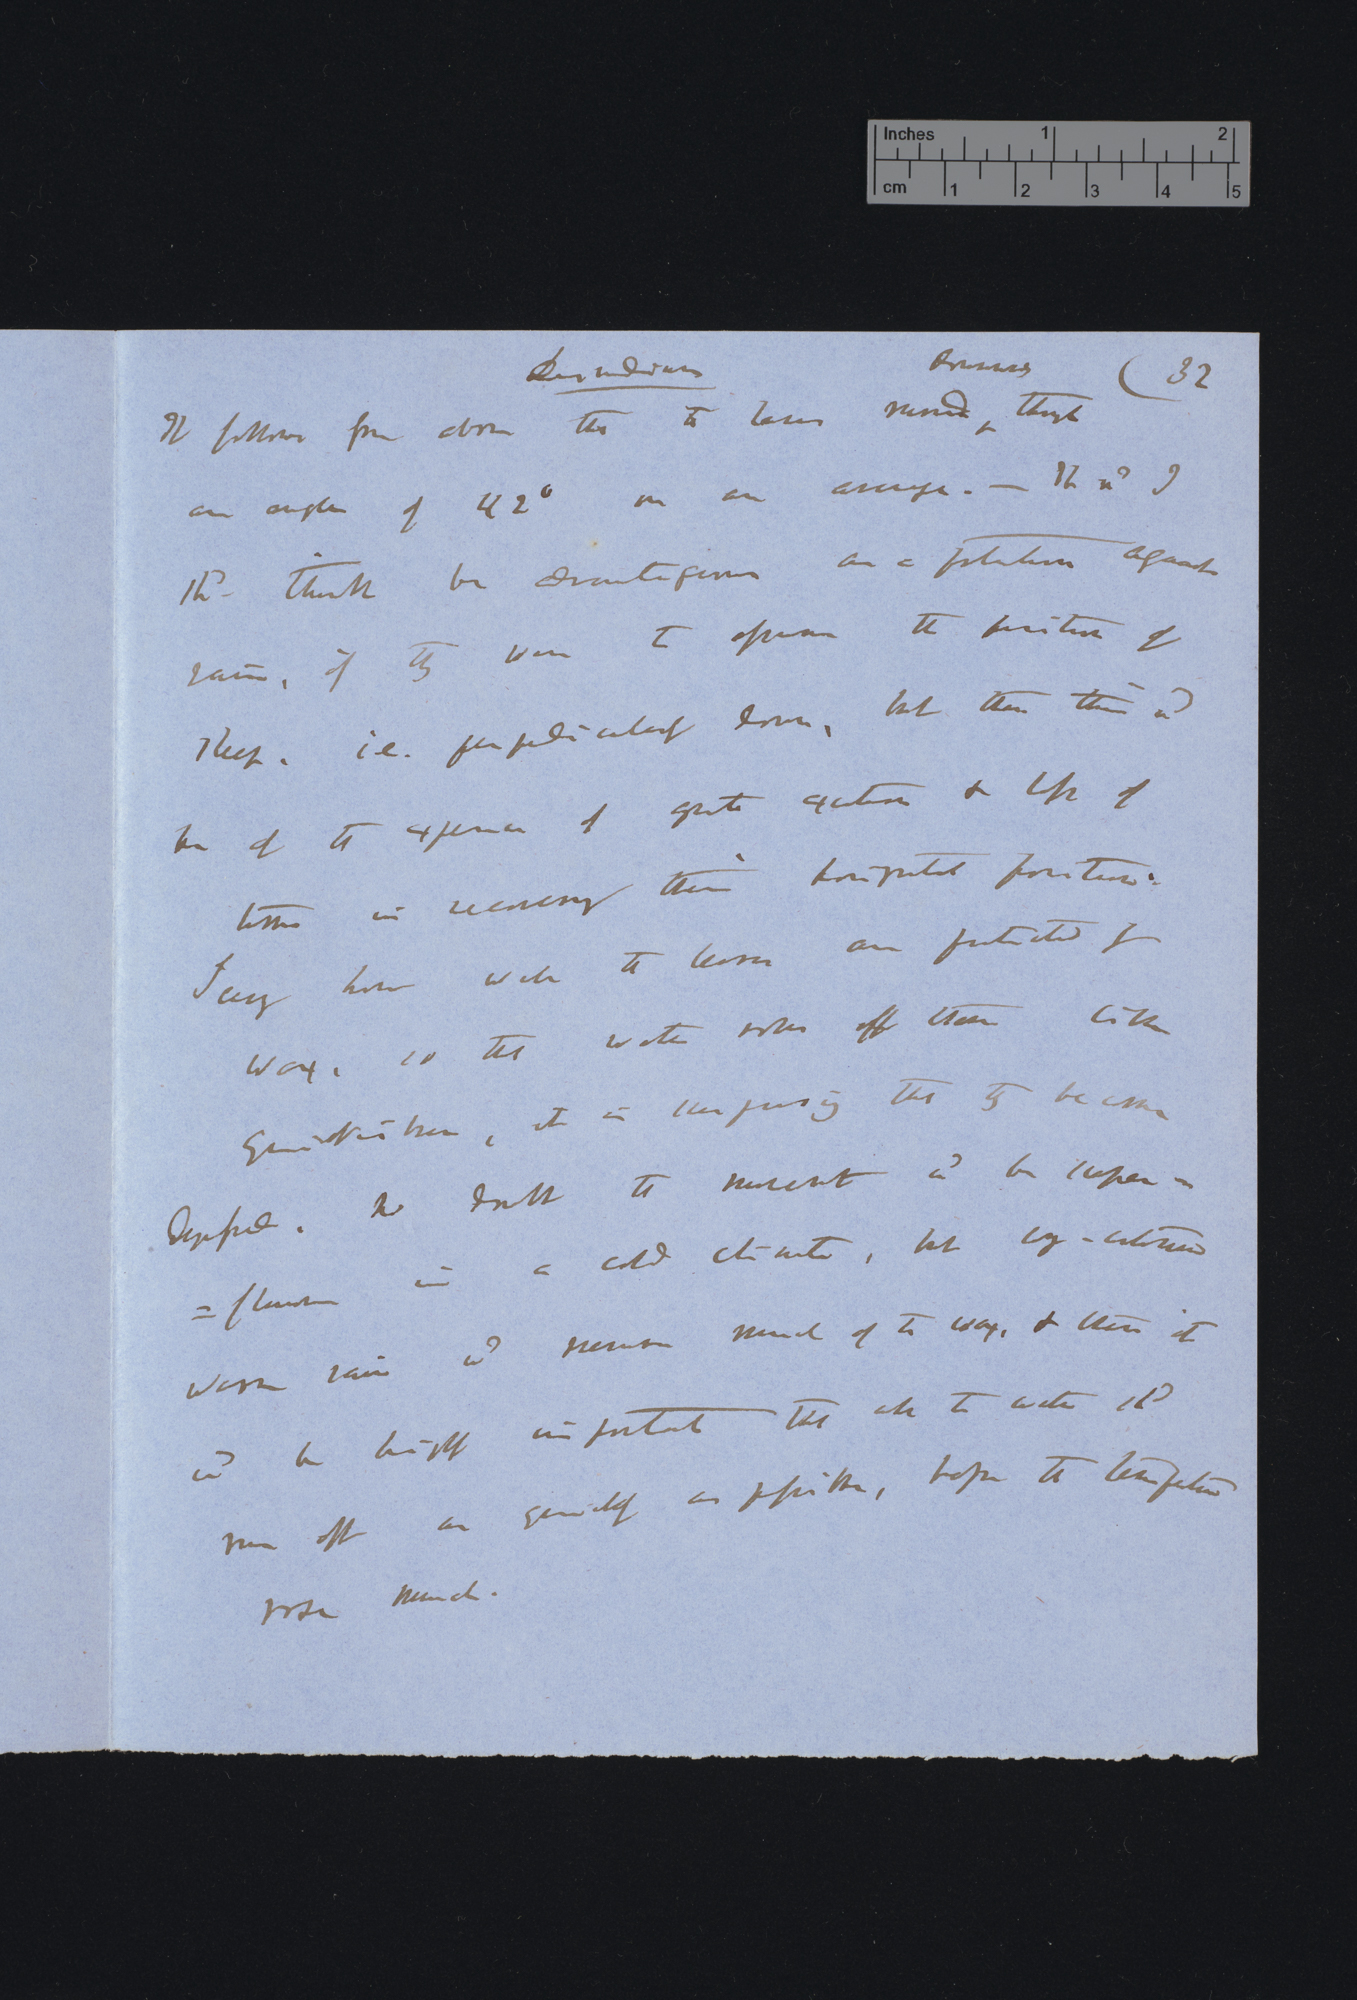 Inches 1 2
cm 1 2 3 4 5
Desmodium (32
downwards
It follows from above that the leaves moved through
an angle of 42° on an average. — It wd I
shd think be advantageous as a protection against
rain, if they were to assume the position of
sleep, i.e. perpendicularly down, but then this wd
be at the expense of great exertion & loss of
time in recovering their horizontal position.
Seeing how well the leaves are protected by
wax, so that water rolls off them like
quicksilver, it is surprising that they become
depressed. No doubt the movement wd be super=
=fluous in a cold climate, but
warm rain wd remove much of the wax, & then it
wd be highly important that all the water shd
run off as quickly as possible, before the temperature
rose much.